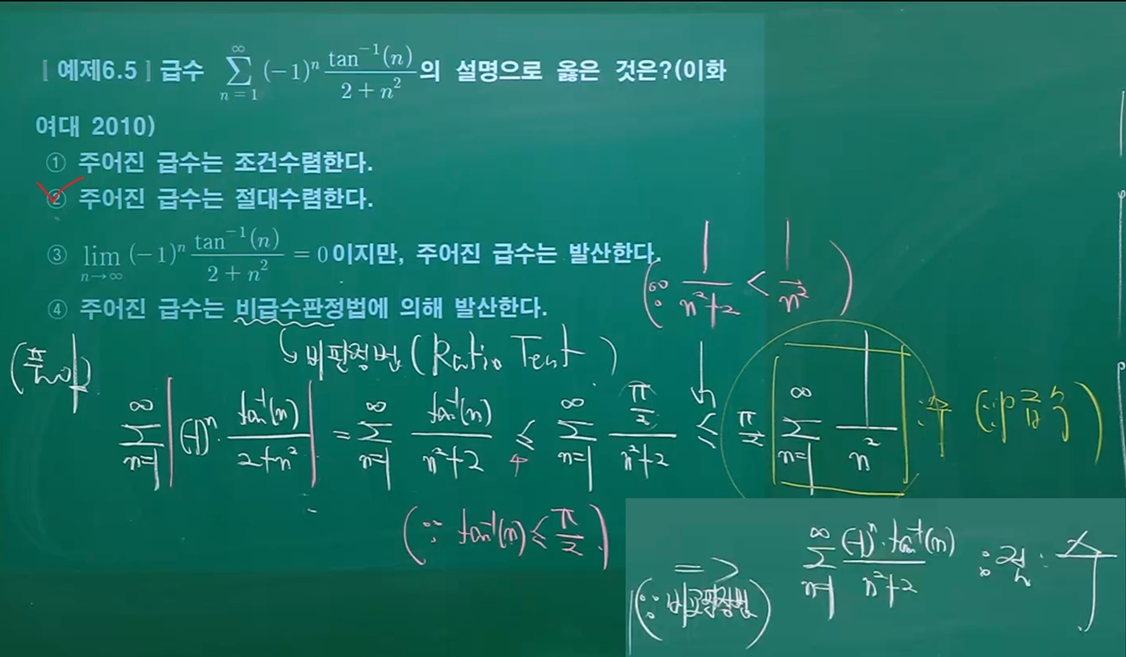 [예제6.5] 급수 $\sum_{n=1}^{\infty} (-1)^n \frac{\tan^{-1}(n)}{2+n^2}$의 설명으로 옳은 것은?(이화
여대 2010)
① 주어진 급수는 조건수렴한다.
② 주어진 급수는 절대수렴한다.
③ $\lim_{n\to\infty} (-1)^n \frac{\tan^{-1}(n)}{2+n^2} = 0$이지만, 주어진 급수는 발산한다.
④ 주어진 급수는 비급수판정법에 의해 발산한다.
(∵ $\frac{1}{n^2+2} < \frac{1}{n^2}$)
(풀이)
↳ 비판정법 (Ratio Test)
$\sum_{n=1}^{\infty} \left| (-1)^n \cdot \frac{\tan^{-1}(n)}{2+n^2} \right| = \sum_{n=1}^{\infty} \frac{\tan^{-1}(n)}{n^2+2} \leq \sum_{n=1}^{\infty} \frac{\frac{\pi}{2}}{n^2+2} \leq \frac{\pi}{2} \sum_{n=1}^{\infty} \frac{1}{n^2}$ : 수 (∵ p급수)
(∵ $\tan^{-1}(n) \leq \frac{\pi}{2}$)
⇒ $\sum_{n=1}^{\infty} \frac{(-1)^n \cdot \tan^{-1}(n)}{n^2+2}$ : 절. 수
(∵ 비교판정법)